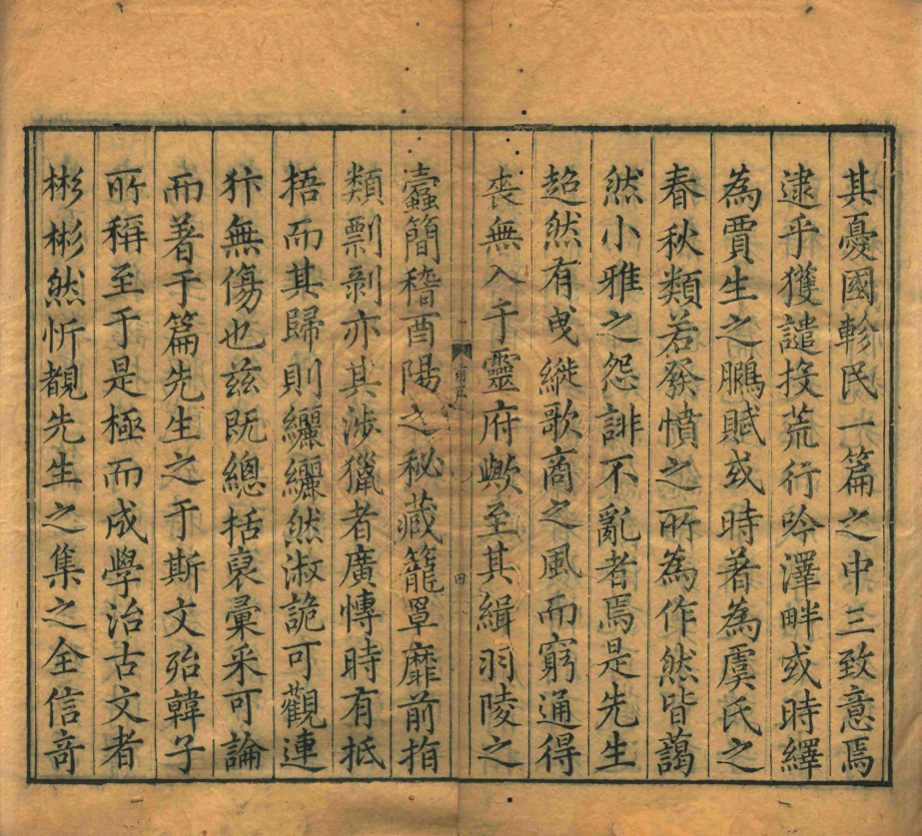 其憂國軫民一篇之中三致意焉
逮乎獲譴投荒行吟澤畔或時繹
為賈生之鵩賦或時著為虞氏之
春秋類若發憤之所為作然皆藹
然小雅之怨誹不亂者焉是先生
超然有曳縰歌商之風而窮通得
喪無入于靈府歟至其緝羽陵之
蠹簡稽酉陽之秘藏籠罩靡前指
類剽剝亦其涉獵者廣慱時有抵
捂而其歸則纚纚然淑詭可觀連
犿無傷也茲既總括裒彚采可論
而著于篇先生之于斯文殆韓子
所稱至于是極而成學治古文者
彬彬然忻覩先生之集之全信竒
四